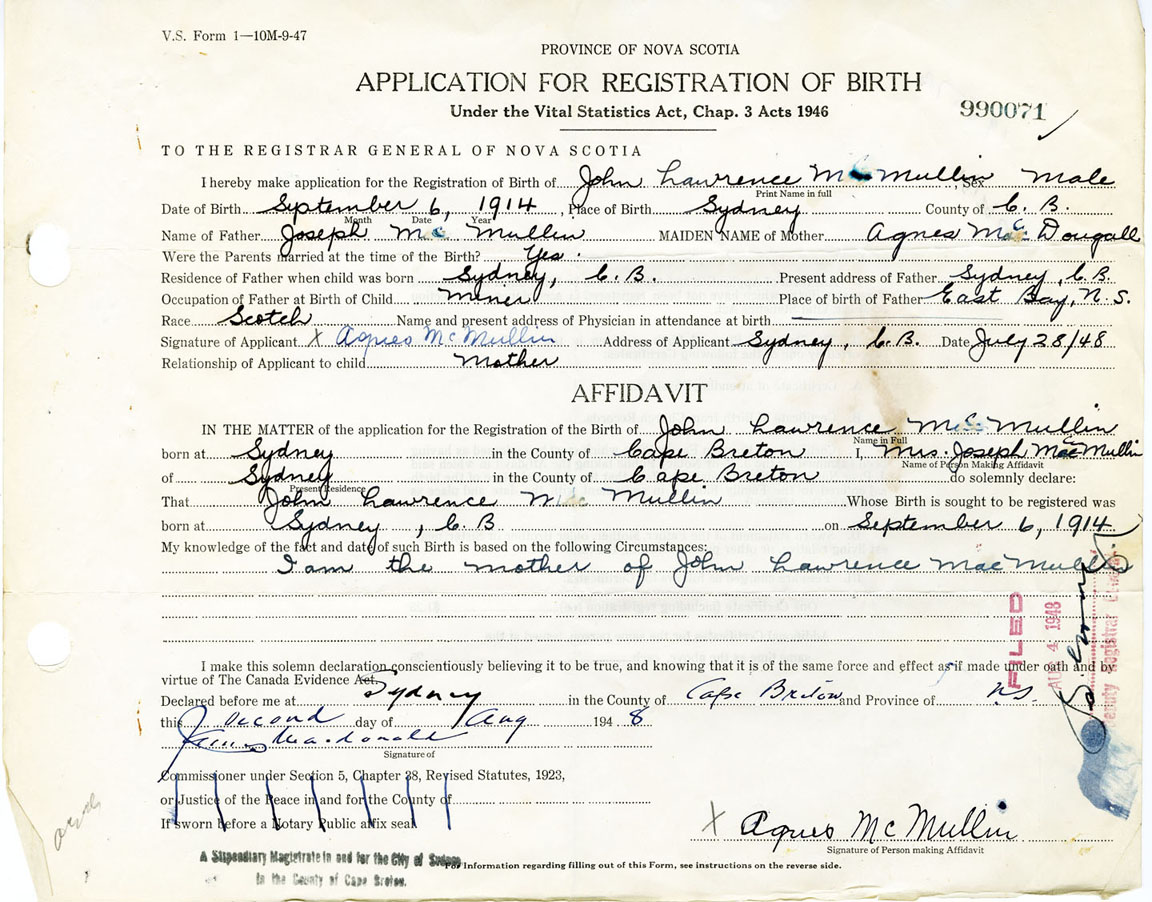 V.S. Form 1—10M-9-47
PROVINCE OF NOVA SCOTIA
APPLICATION FOR REGISTRATION OF BIRTH
Under the Vital Statistics Act, Chap. 3 Acts 1946
990071
TO THE REGISTRAR GENERAL OF NOVA SCOTIA
I hereby make application for the Registration of Birth of John Lawrence Mc Mullin Sex Male
Print Name in full
Date of Birth September 6, 1914, Place of Birth Sydney County of C. B.
Month Date Year
Name of Father Joseph Mc Mullin MAIDEN NAME of Mother Agnes Mac Dougall
Were the Parents married at the time of the Birth? Yes.
Residence of Father when child was born Sydney, C. B. Present address of Father Sydney, C.B.
Occupation of Father at Birth of Child Miner Place of birth of Father East Bay, N.S.
Race Scotch Name and present address of Physician in attendance at birth
Signature of Applicant X Agnes Mc Mullin Address of Applicant Sydney, C.B. Date July 28/48
Relationship of Applicant to child Mother
AFFIDAVIT
IN THE MATTER of the application for the Registration of the Birth of John Lawrence Mc Mullin
Name in Full
born at Sydney in the County of Cape Breton I, Mrs. Joseph McMullin
Name of Person Making Affidavit
of Sydney in the County of Cape Breton do solemnly declare:
Present Residence
That John Lawrence Mc Mullin Whose Birth is sought to be registered was
born at Sydney, C. B on September 6, 1914
My knowledge of the fact and date of such Birth is based on the following Circumstances:
I am the mother of John Lawrence Mac Mullin
FILED
AUG 4 1948
Deputy Registrar General
I make this solemn declaration conscientiously believing it to be true, and knowing that it is of the same force and effect as if made under oath and by
virtue of The Canada Evidence Act.
Declared before me at Sydney in the County of Cape Breton and Province of N.S.
this Second day of Aug 1948
Macdonald
Signature of
Commissioner under Section 5, Chapter 38, Revised Statutes, 1923,
or Justice of the Peace in and for the County of
If sworn before a Notary Public affix seal
X Agnes Mc Mullin
Signature of Person making Affidavit
A Stipendiary Magistrate in and for the City of Sydney
In the County of Cape Breton.
For Information regarding filling out of this Form, see instructions on the reverse side.